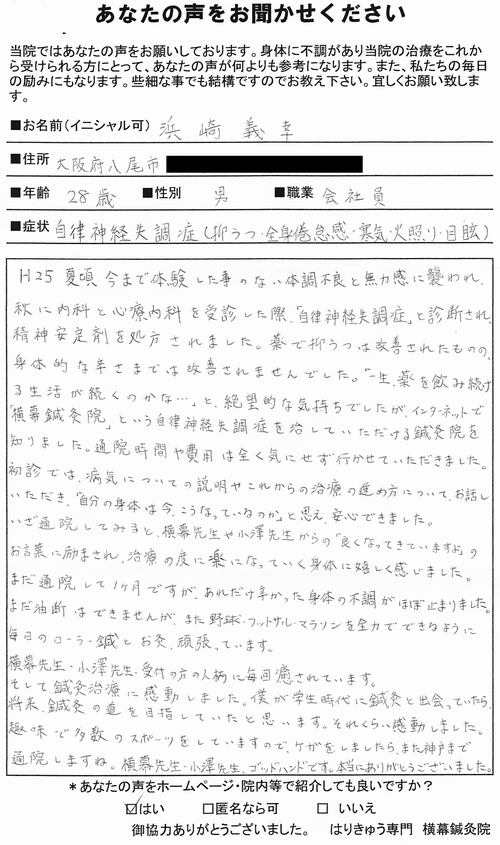 あなたの声をお聞かせください
当院ではあなたの声をお願いしております。身体に不調があり当院の治療をこれか
ら受けられる方にとって、あなたの声が何よりも参考になります。また、私たちの毎日
の励みにもなります。些細な事でも結構ですのでお教え下さい。宜しくお願い致しま
す。
■お名前(イニシャル可) 浜崎義幸
■住所 大阪府八尾市
■年齢 28歳 ■性別 男 ■職業 会社員
■症状 自律神経失調症(抑うつ・全身倦怠感・寒気・火照り・目眩)
H25 夏頃 今まで体験した事のない体調不良と無力感に襲われ、
秋に内科と心療内科を受診した際、「自律神経失調症」と診断され
精神安定剤を処方されました。薬で抑うつは改善されたものの、
身体的な辛さまでは改善されませんでした。「一生、薬を飲み続け
る生活が続くのかな…」と、絶望的な気持ちでしたが、インターネットで
「横幕鍼灸院」という自律神経失調症を治していただける鍼灸院を
知りました。通院時間や費用は全く気にせず行かせていただきました。
初診では、病気についての説明やこれからの治療の進め方について、お話し
いただき、「自分の身体は今、こうなっているのか」と思え、安心できました。
いざ通院してみると、横幕先生や小澤先生からの「良くなってきていますよ」の
お言葉に励まされ、治療の度に楽になっていく身体に嬉しく感じました。
まだ通院して1ヶ月ですが、あれだけ辛かった身体の不調がほぼ止まりました。
まだ油断はできませんが、また野球・フットサル・マラソンを全力でできるように
毎日のローラー鍼とお灸、頑張っています。
横幕先生・小澤先生・受付の方の人柄に毎回癒されています。
そして鍼灸治療に感動しました。僕が学生時代に鍼灸と出会っていたら、
将来、鍼灸の道を目指していたと思います。それくらい感動しました。
趣味で多数のスポーツをしていますので、ケガをしましたら、また神戸まで
通院しますね。横幕先生・小澤先生、ゴッドハンドです。本当にありがとうございました。
*あなたの声をホームページ・院内等で紹介しても良いですか?
☑はい □匿名なら可 □ いいえ
御協力ありがとうございました。 はりきゅう専門 横幕鍼灸院